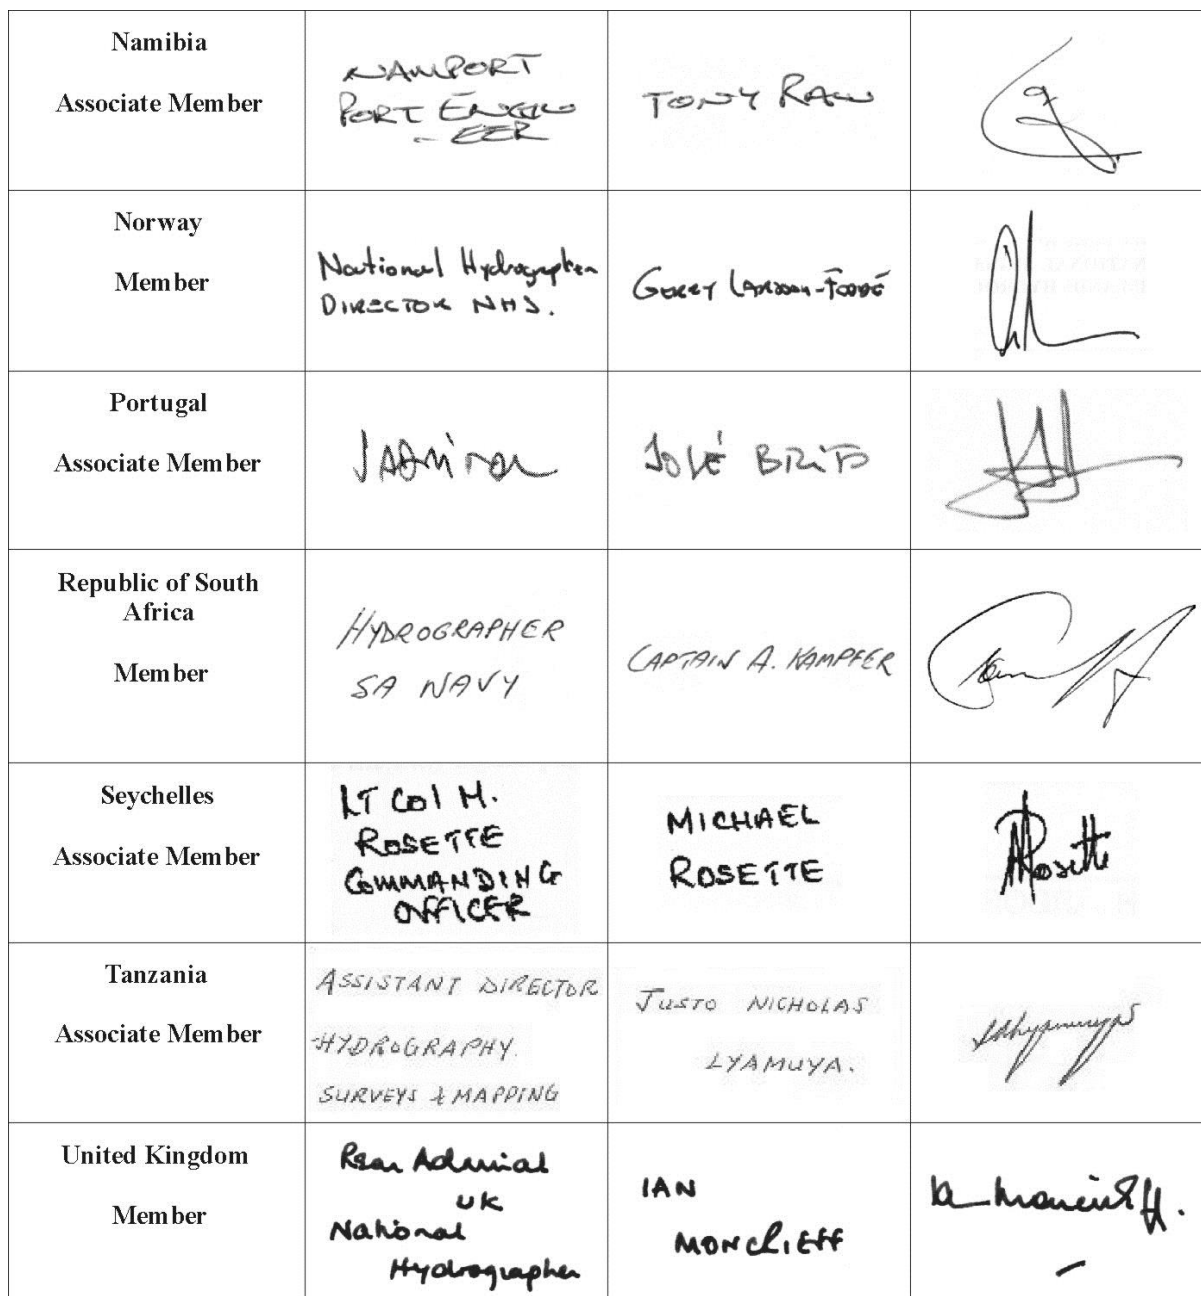 Namibia
Associate Member
NAMPORT
PORT ENGIN
-EER
TONY RAW
Norway
Member
National Hydrographer
DIRECTOR NHS.
GERRY LARSSON-FEDDE
Portugal
Associate Member
JOSÉ BRITO
Republic of South
Africa
Member
HYDROGRAPHER
SA NAVY
CAPTAIN A. KAMPFER
Seychelles
Associate Member
LT Col M.
ROSETTE
COMMANDING
OFFICER
MICHAEL
ROSETTE
MRosette
Tanzania
Associate Member
ASSISTANT DIRECTOR
HYDROGRAPHY.
SURVEYS & MAPPING
JUSTO NICHOLAS
LYAMUYA.
United Kingdom
Member
Rear Admiral
UK
National
Hydrographer
IAN
MONCRIEFF
Ian Moncrieff.